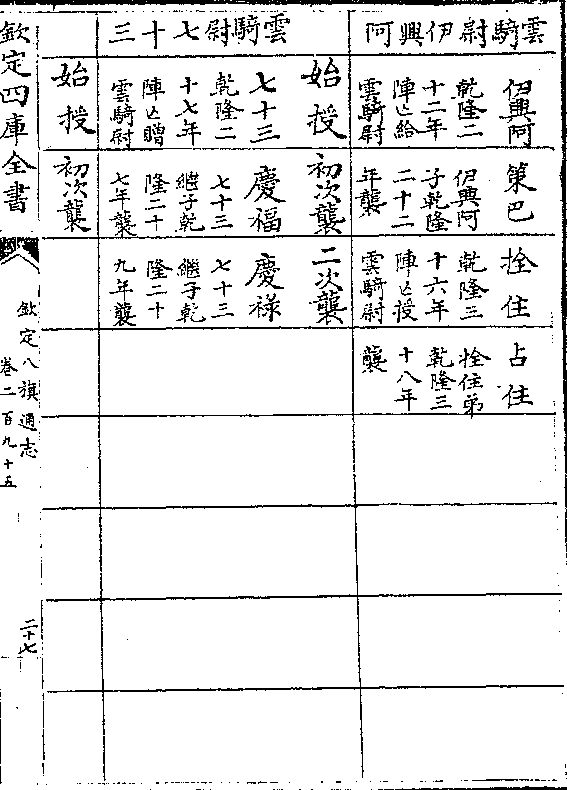 雲騎尉伊興阿
伊興阿
乾隆二
十二年
陣亡給
雲騎尉
策巴
伊興阿
子乾隆
二十二
年襲
拴住
乾隆三
十六年
陣亡授
雲騎尉
占住
拴住弟
乾隆三
十八年
襲
雲騎尉七十三
始授
初次襲
二次襲
七十三
乾隆二
十七年
陣亡贈
雲騎尉
慶福
七十三
繼子乾
隆二十
七年襲
慶禄
七十三
繼子乾
隆二十
九年襲
始授
初次襲
欽定四庫全書
欽定八旗通志
卷二百九十五
二十七